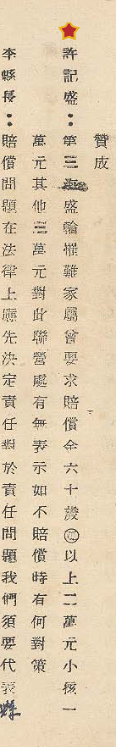 贊成
許記盛：第三盛輪罹難家屬曾要求賠償金六十歲以上二萬元小孩一
萬元其他三萬元對此聯營處有無表示如不賠償時有何對策
李縣長：賠償問題在法律上應先決定責任對於責任問題我們須要代表